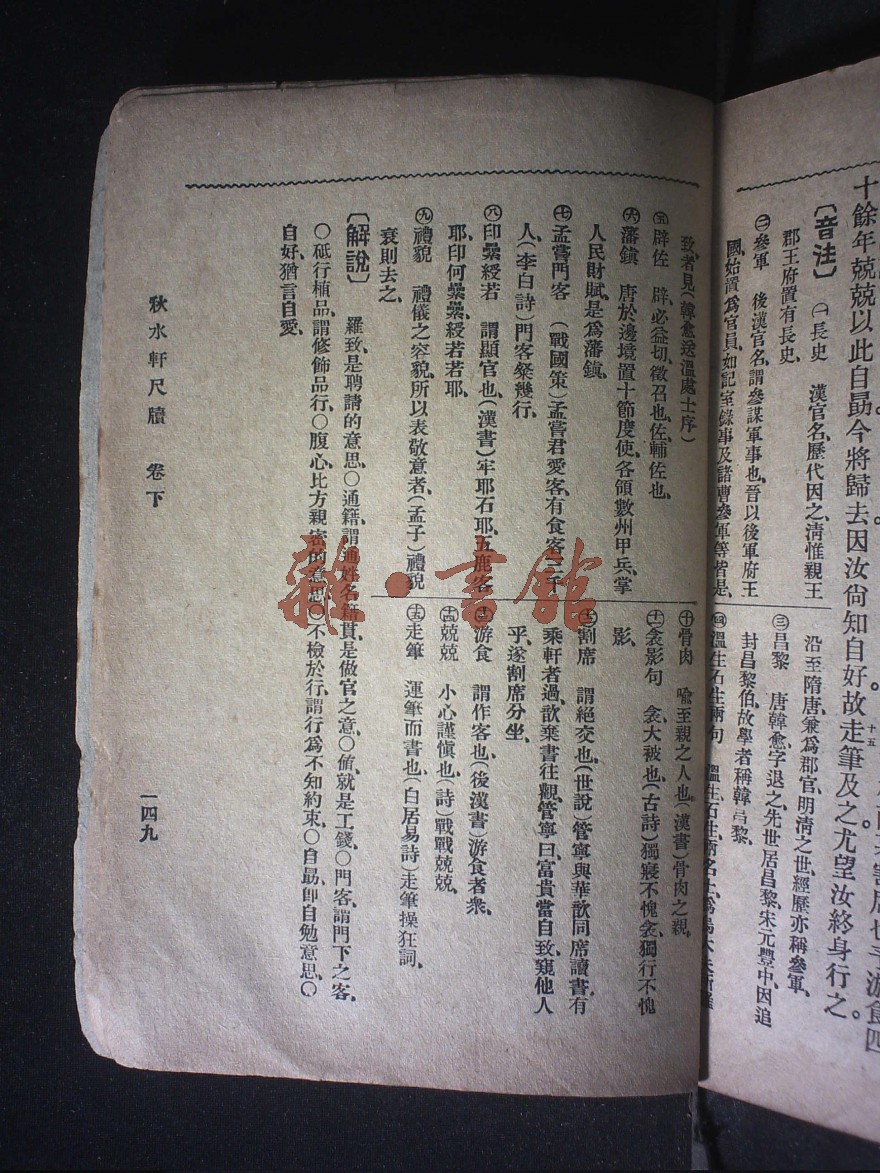 十餘年兢兢以此自勗今將歸去因汝尙知自好故走筆及之尤望汝終身行之。
〔音注〕 ㊀長史 漢官名、歷代因之、淸惟親王
郡王府置有長史、
㊁參軍 後漢官名、謂參謀軍事也、晉以後軍府王
國、始置爲官員、如記室錄事及諸曹參軍等皆是、
沿至隋唐、兼爲郡官、明清之世、經歷亦稱參軍、
㊂昌黎 唐韓愈、字退之、先世居昌黎、宋元豐中、因追
封昌黎伯、故學者稱韓昌黎、
㊃溫生石生兩句 溫生、石生、兩名士、爲烏大夫所羅
致、者見(韓愈送溫處士序)
㊄辟佐 辟、必益切、徵召也、佐、輔佐也、
㊅藩鎮 唐於邊境置十節度使、各領數州甲兵、掌
人民財賦、是爲藩鎮、
㊆孟嘗門客 (戰國策)孟嘗君愛客、有食客三千
人、(李白詩)門客粲幾行、
㊇印纍綬若 謂顯官也、(漢書)牢耶石耶、五鹿客
耶、印何纍纍、綬若若耶、
㊈禮貌 禮儀之容貌、所以表敬意者、(孟子)禮貌
衰則去之、
㊉骨肉 喩至親之人也、(漢書)骨肉之親、
十一衾影句 衾、大被也、(古詩)獨寢不愧衾、獨行不愧
影、
十二割席 謂絕交也、(世說)管寧與華歆同席讀書、有
乘軒者過、歆棄書往觀、管寧曰、富貴當自致、窺他人
乎、遂割席分坐、
十三游食 謂作客也、(後漢書)游食者衆、
十四兢兢 小心謹愼也、(詩)戰戰兢兢、
十五走筆 運筆而書也、(白居易詩)走筆操狂詞、
〔解說〕 羅致是聘請的意思、○通籍、謂通姓名籍貫、是做官之意、○脩、就是工錢、○門客、謂門下之客、
○砥行植品、謂修飾品行、○腹心、比方親密的意思、○不檢於行、謂行爲不知約束、○自勗、卽自勉意思、○
自好、猶言自愛、
秋水軒尺牘 卷下
一四九
雜·書館